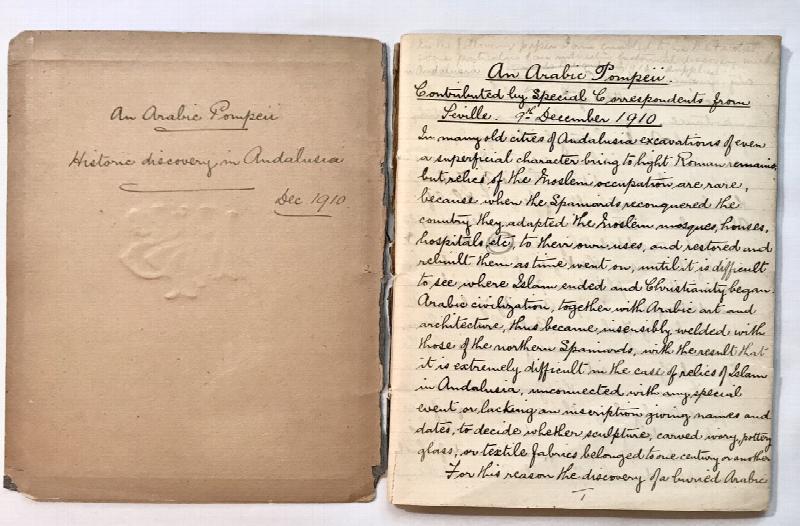 An Arabic Pompeii
Historic discovery in Andalusia
Dec 1910
An Arabic Pompeii.
Contributed by Special Correspondents from
Seville. 9th December 1910
In many old cities of Andalusia excavations of even
a superficial character bring to light Roman remains,
but relics of the Moslem occupation are rare,
because when the Spaniards reconquered the
country they adapted the Moslem mosques, houses,
hospitals, etc, to their own uses, and restored and
rebuilt them as time went on, until it is difficult
to see, where Islam ended and Christianity began.
Arabic civilization, together with Arabic art and
architecture, thus became insensibly welded with
those of the northern Spaniards, with the result that
it is extremely difficult in the case of relics of Islam
in Andalusia, unconnected with any special
event or lacking an inscription giving names and
dates, to decide whether sculpture, carved ivory, pottery
glass, or textile fabrics belonged to one century or another
For this reason the discovery of a buried Arabic
1